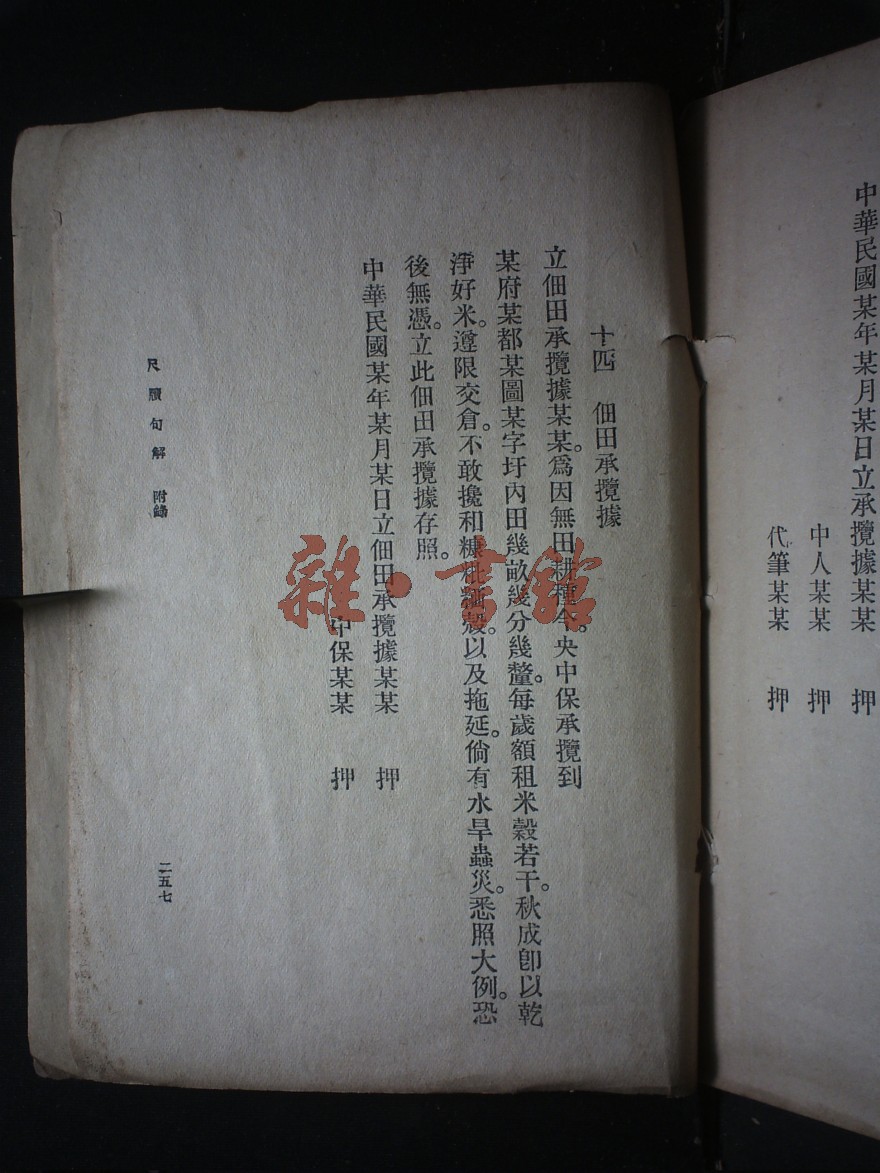 中華民國某年某月某日立承攬據某某　押
中人某某　押
代筆某某　押
十四　佃田承攬據
立佃田承攬據某某。爲因無田耕種。今央中保承攬到
某府某都某圖某字圩內田幾畝幾分幾釐。每歲額租米穀若干。秋成卽以乾
淨好米。遵限交倉。不敢攙和糠粃粞穀。以及拖延。倘有水旱蟲災。悉照大例。恐
後無憑。立此佃田承攬據存照。
中華民國某年某月某日立佃田承攬據某某　押
中保某某　押
尺牘句解　附錄
二五七
雜·書館